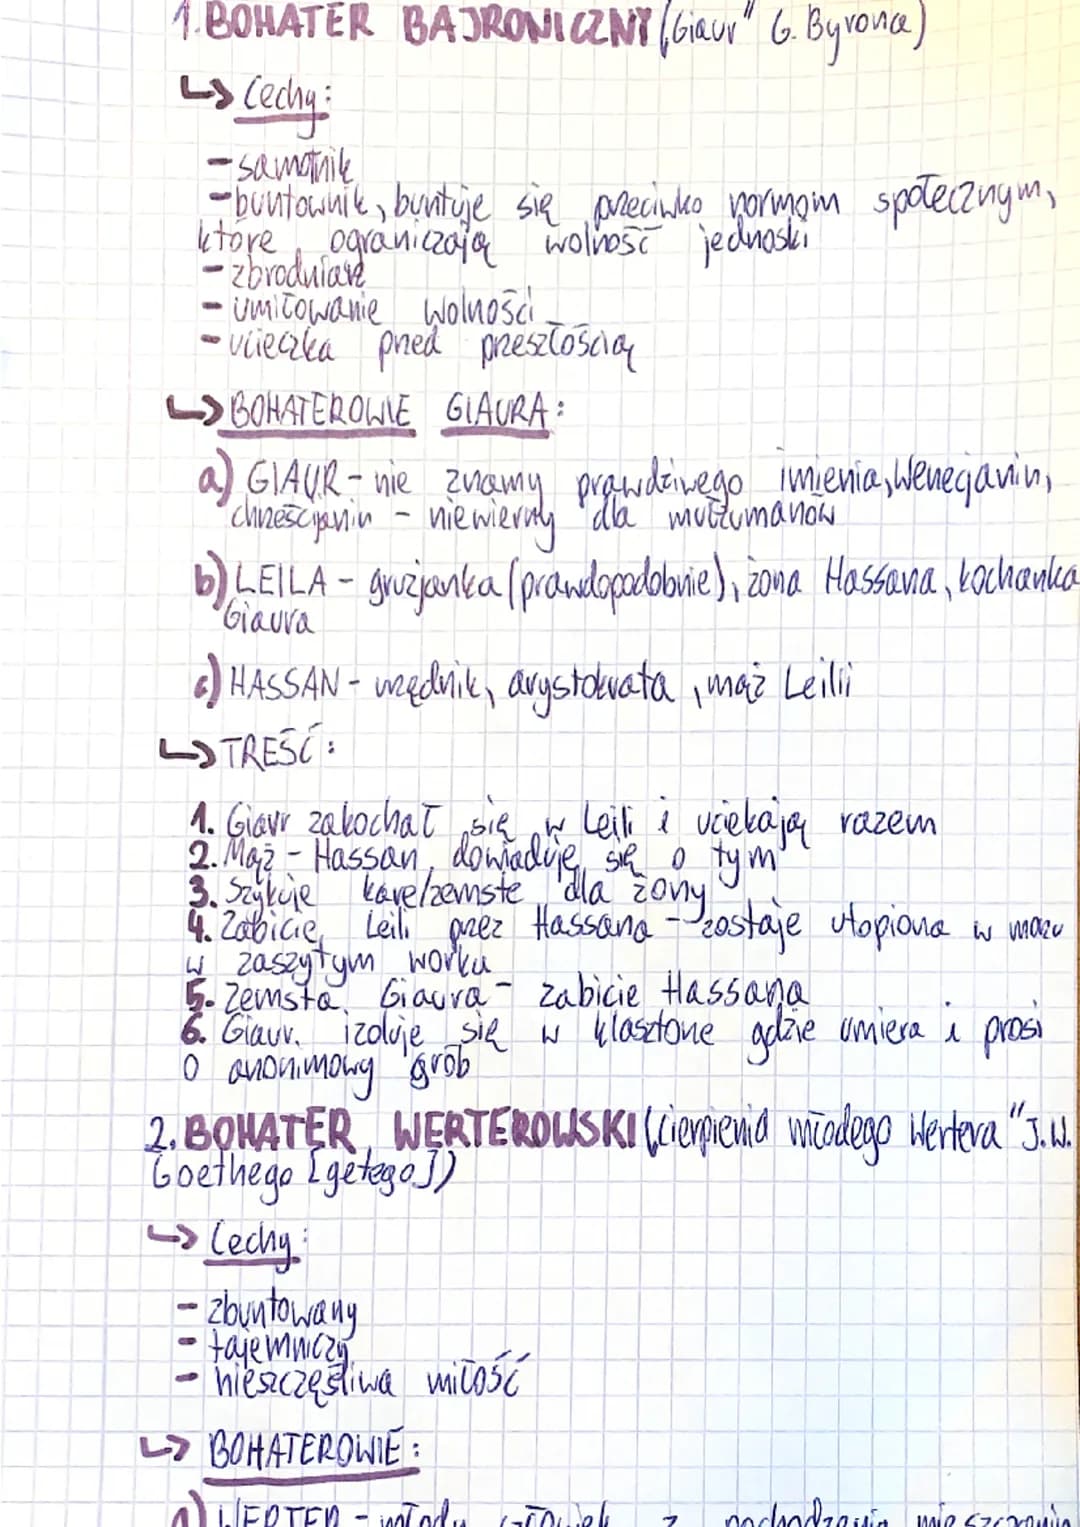 1. BOHATER BAJRONICZNY („Giaur" G. Byrona)
↳ Cechy:
- samotnik
- buntownik, buntuje się przeciwko normom społecznym,
które ograniczają wolność jednoski
- zbrodniarz
- umiłowanie wolności
- ucieczka przed przeszłością
↳ BOHATEROWIE GIAURA:
a) GIAUR - nie znamy prawdziwego imienia, Wenecjanin,
chrześcijanin - niewierny dla muzłumanów
b) LEILA - gruzjanka (prawdopodobnie), żona Hassana, kochanka
Giaura
c) HASSAN - urzędnik, arystokrata, mąż Leilii
↳ TREŚĆ:
1. Giaur zakochał się w Leili i uciekają razem
2. Mąż - Hassan, dowiaduje się o tym
3. Szykuje karę/zemste dla żony
4. Zabicie Leili przez Hassana - zostaje utopiona w morzu
w zaszytym worku
5. Zemsta Giaura - zabicie Hassana
6. Giaur izoluje się w klasztorze gdzie umiera i prosi
o anonimowy grób
2. BOHATER WERTEROWSKI („Cierpienia młodego Wertera" J.W.
Goethego [getego])
↳ Cechy:
- zbuntowany
- tajemniczy
- nieszczęśliwa miłość
↳ BOHATEROWIE:
a) WERTER - młody człowiek z pochodzenia mieszczanin